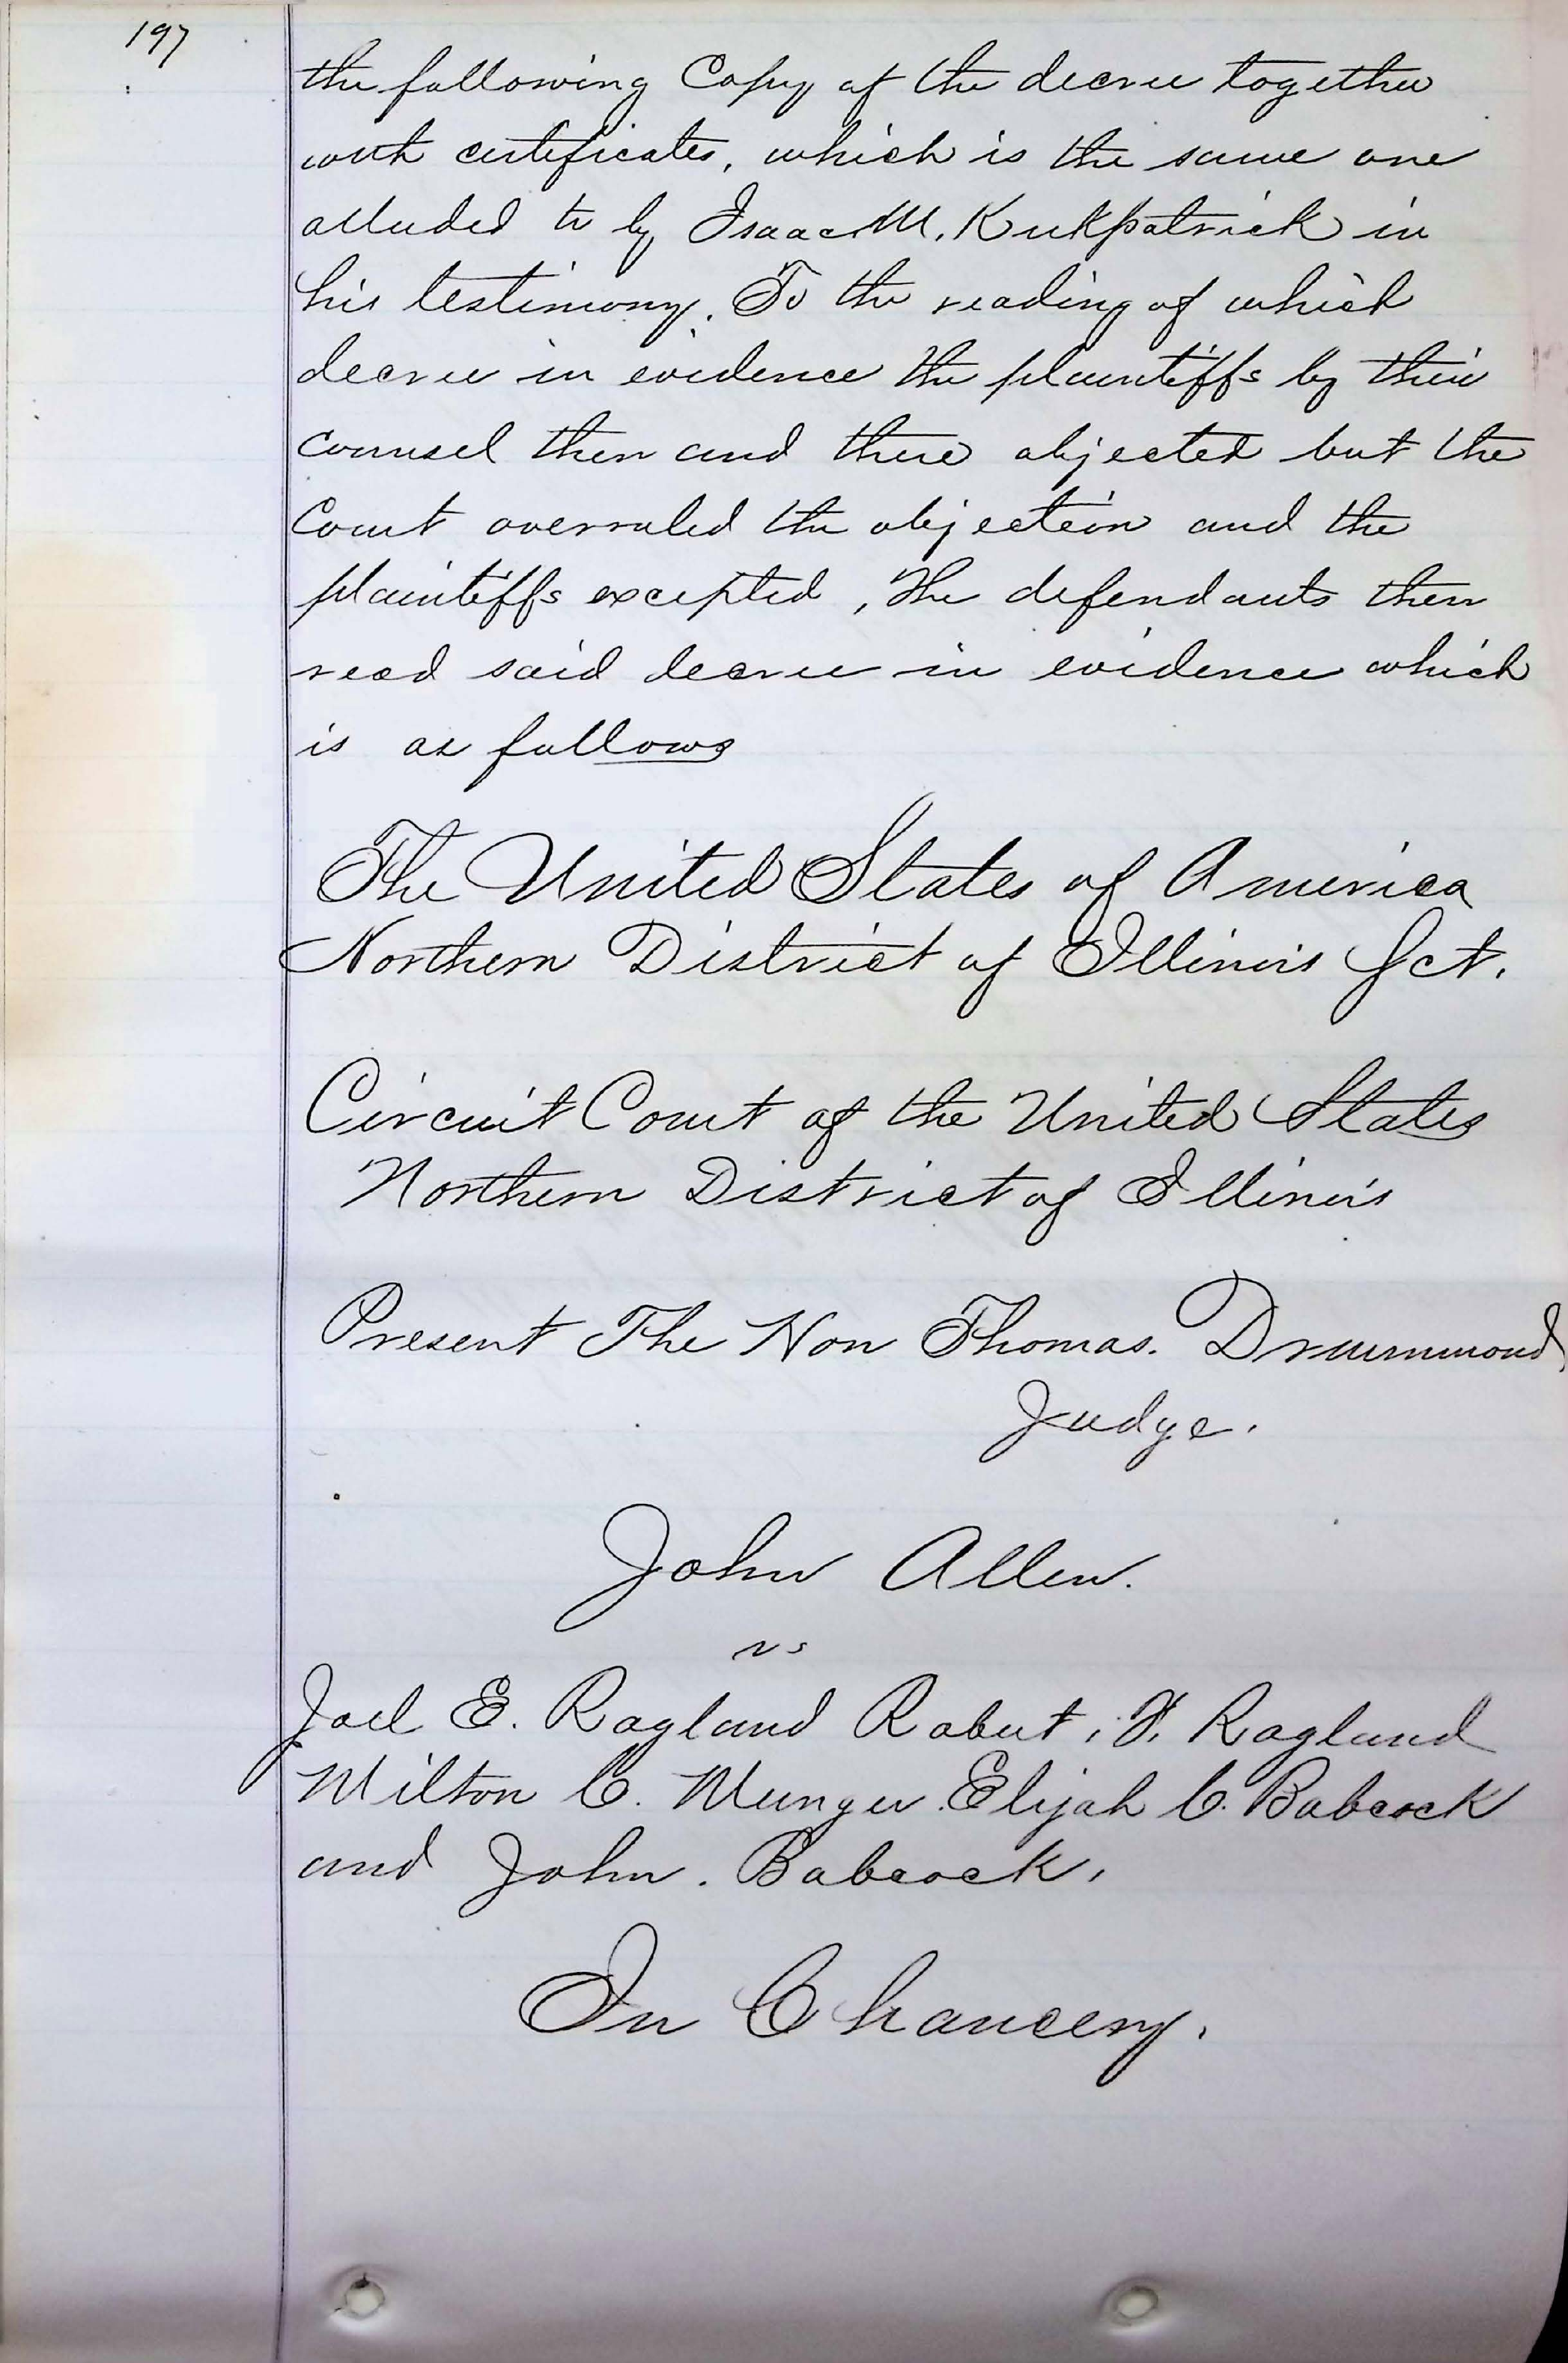 197
the following Copy of the decree together
with certificates, which is the same one
alluded to by Isaac M. Kirkpatrick in
his testimony. To the reading of which
decree in evidence the plaintiffs by their
counsel then and there objected but the
Court overruled the objection and the
plaintiffs excepted, The defendants then
read said decree in evidence which
is as follows
The United States of America
Northern District of Illinois Sct.
Circuit Court of the United States
Northern District of Illinois
Present The Hon Thomas. Drummond
Judge.
John Allen.
vs
Joel E. Ragland Robert, Ragland
Milton C. Munger. Elijah C. Babcock
and John. Babcock,
In Chancery.